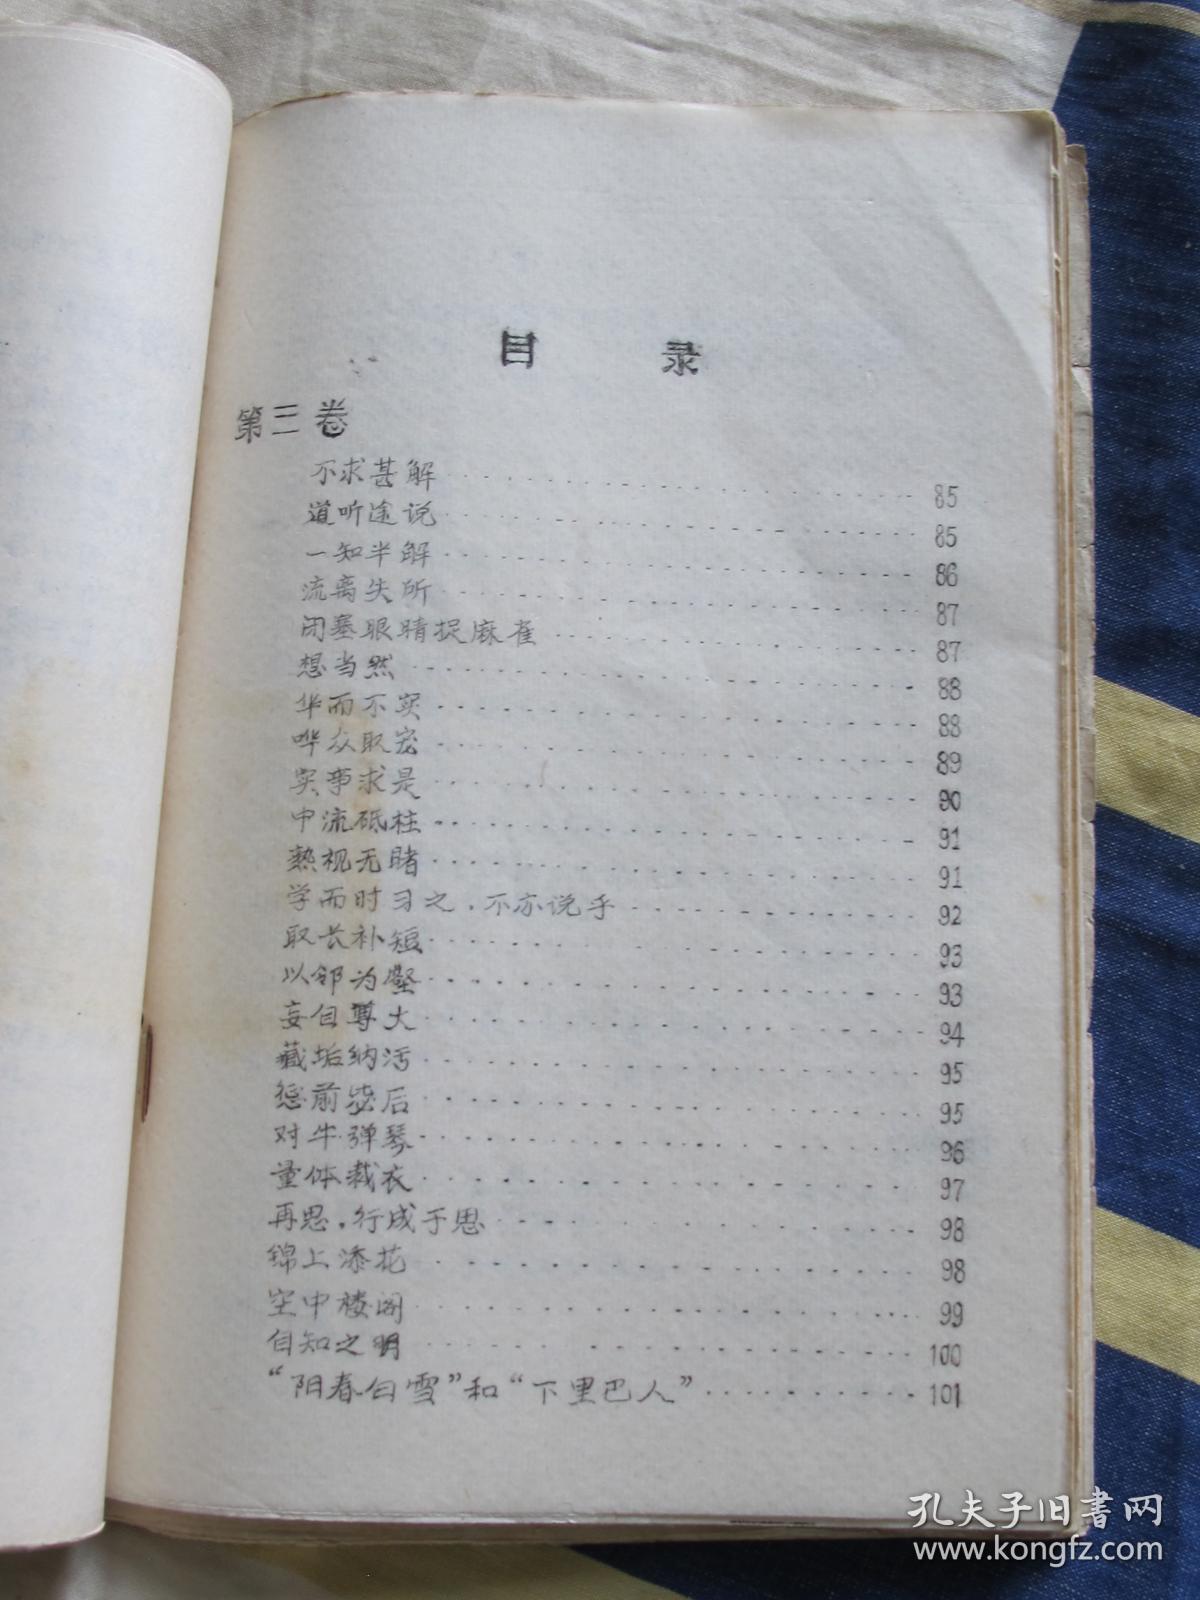 目 录
第三卷
不求甚解 85
道听途说 85
一知半解 86
流离失所 87
闭塞眼睛捉麻雀 87
想当然 88
华而不实 88
哗众取宠 89
实事求是 90
中流砥柱 91
熟视无睹 91
学而时习之，不亦说乎 92
取长补短 93
以邻为壑 93
妄自尊大 94
藏垢纳污 95
惩前毖后 95
对牛弹琴 96
量体裁衣 97
再思，行成于思 98
锦上添花 98
空中楼阁 99
自知之明 100
“阳春白雪”和“下里巴人” 101
孔夫子旧书网
www.kongfz.com